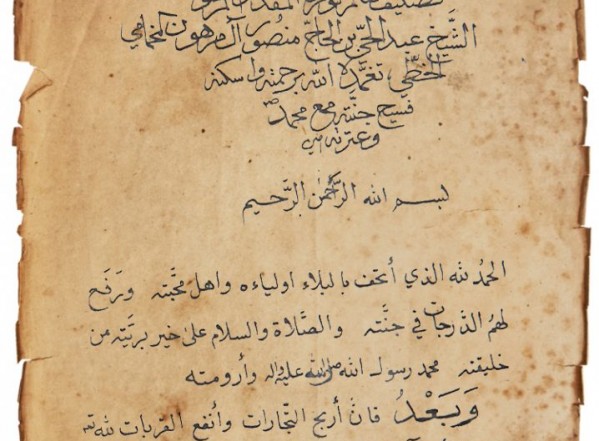 تصنيف المرحوم المقدس المبرور
الشَّيخ عبد الحيّ بن الحاجّ منصور آل مرهون
الخطِّي، تغمَّده الله برحمته واسكنه
فسيح جنَّته مع محمد ص
وعترته
بسم الله الرَّحمٰن الرَّحيم
الحمدُ لله الذي أتحف بالبلاء اولياءه واهل محبَّته ورَفَع
لهمُ الدَّرجات في جنَّته والصَّلاة والسلام على خير بريَّته من
خليقته محمد رسول الله صلى الله عليه واله وأرومته
وَبَعْدُ فانَّ أربح التِّجارات وأنفع القربات لله تع